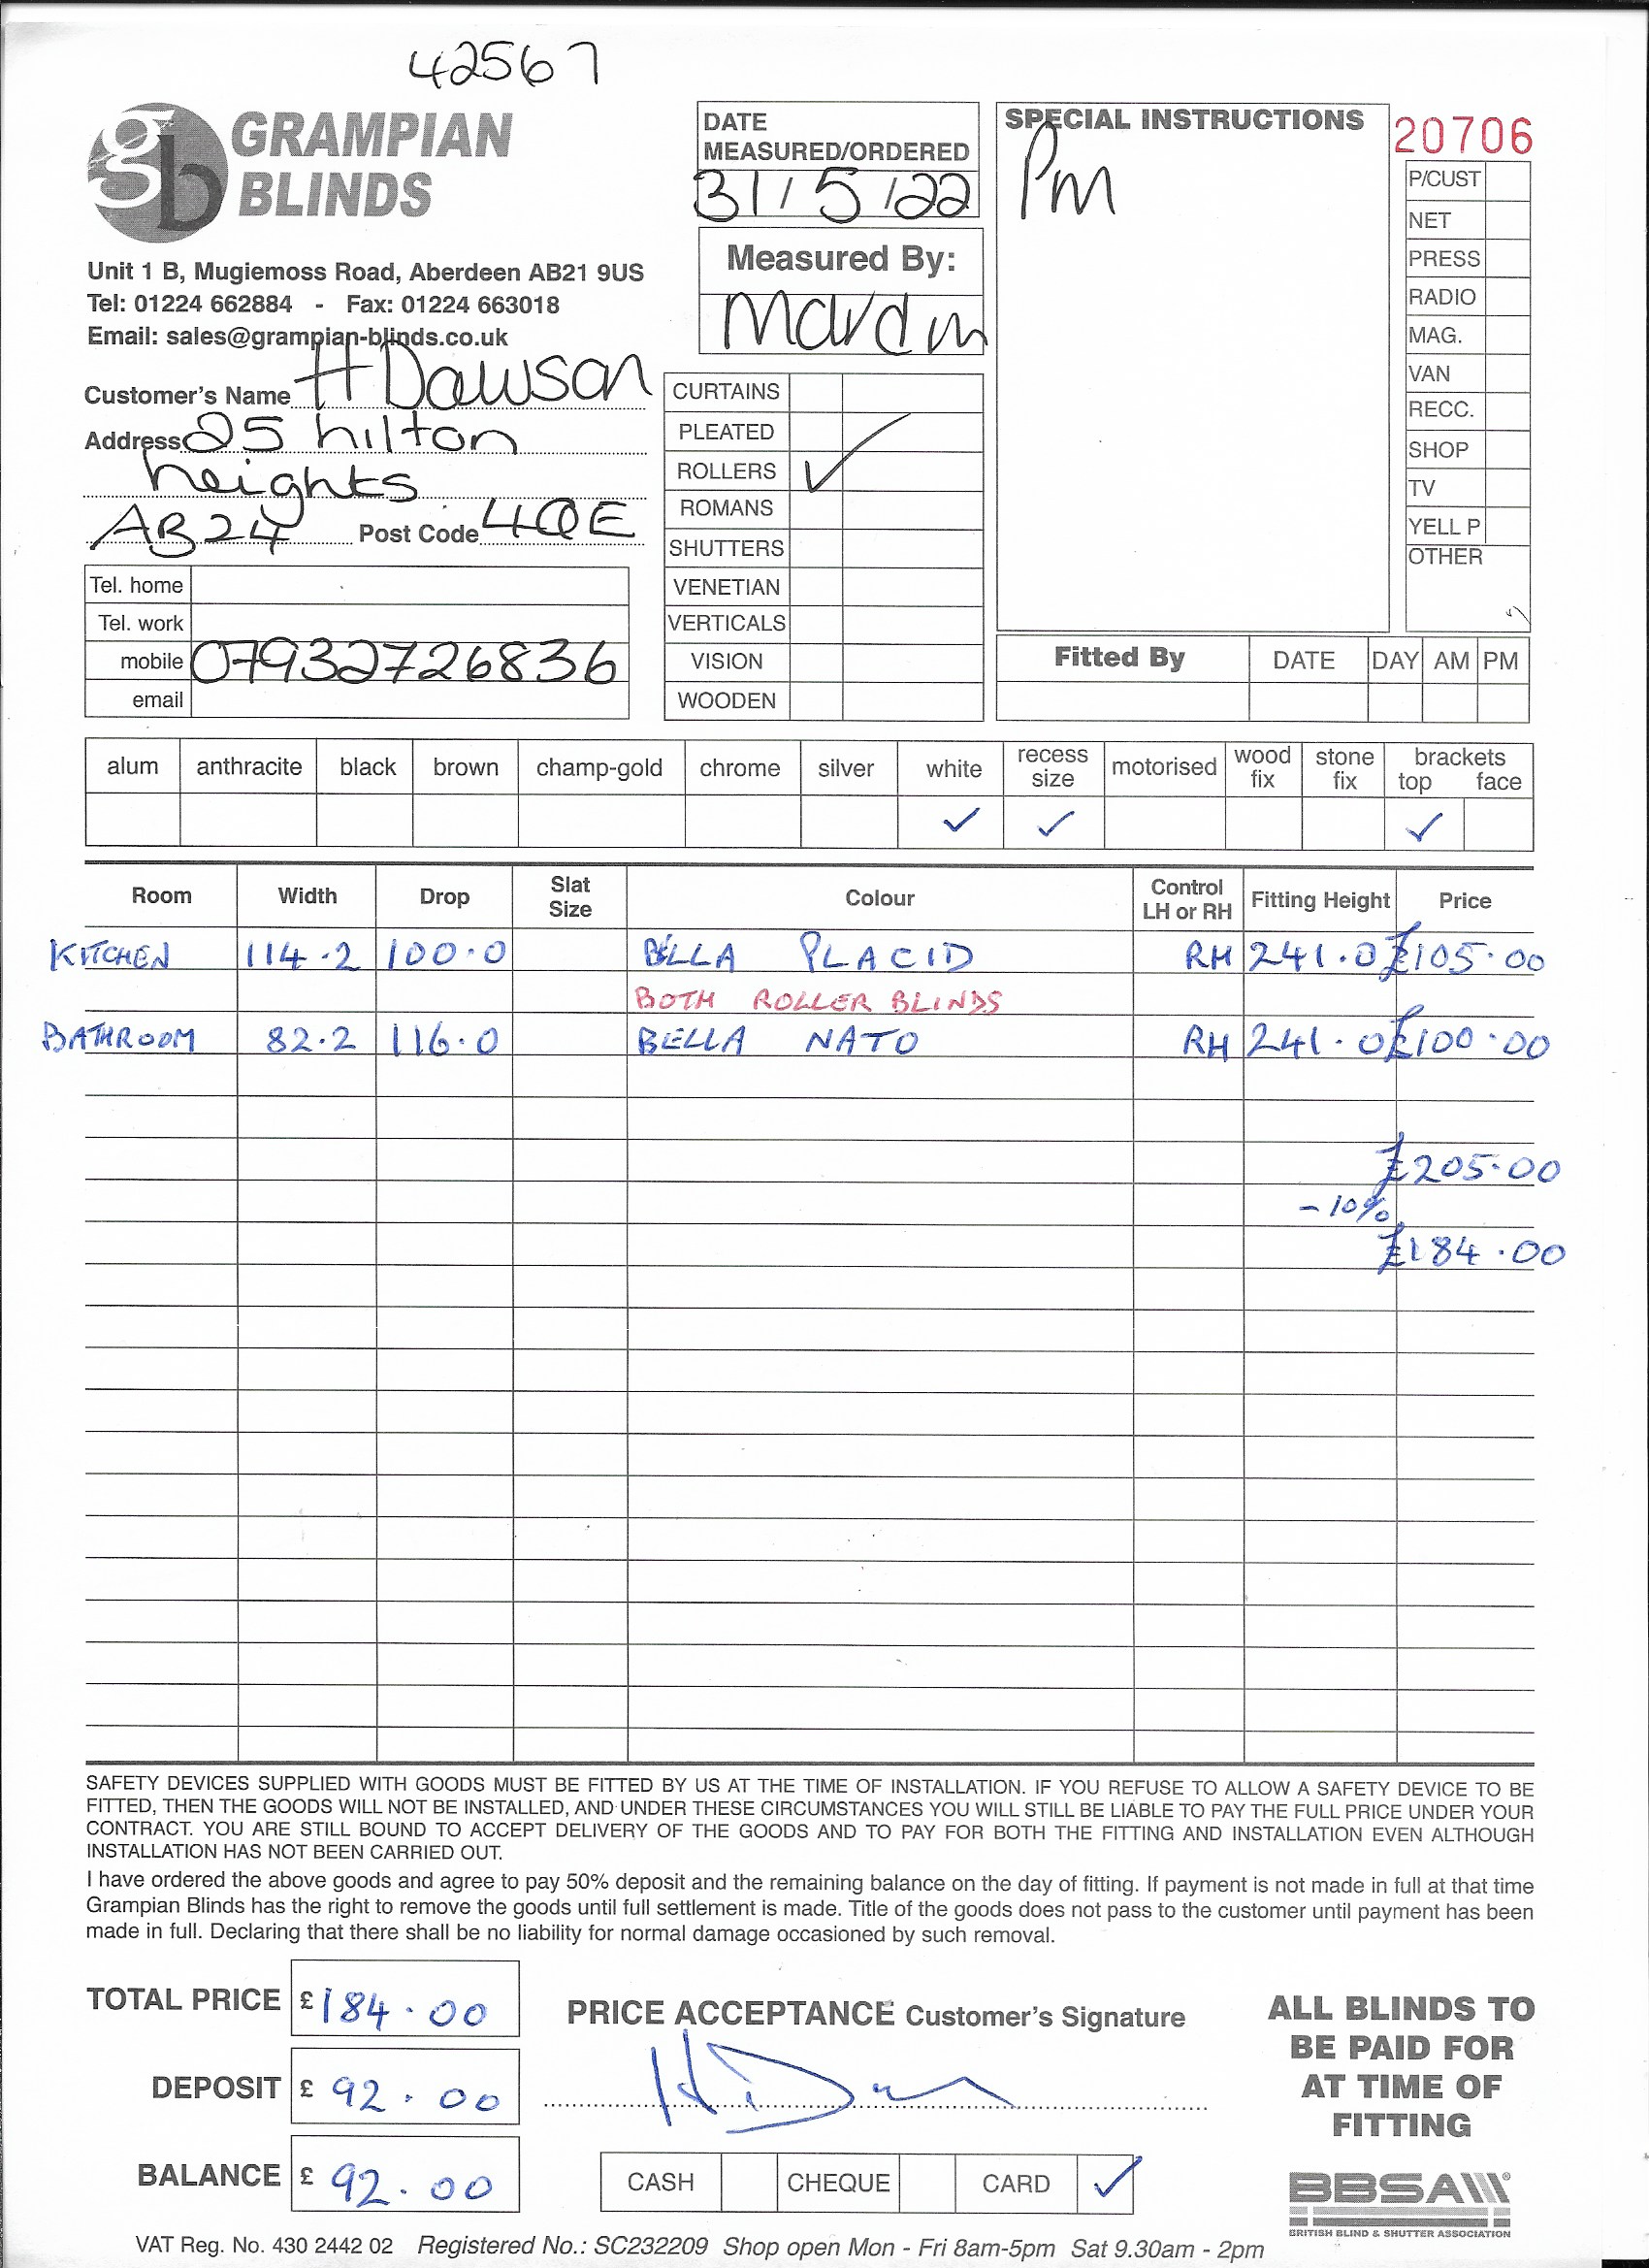 42567
gb GRAMPIAN
BLINDS
Unit 1 B, Mugiemoss Road, Aberdeen AB21 9US
Tel: 01224 662884 - Fax: 01224 663018
Email: sales@grampian-blinds.co.uk
Customer's Name H Dawson
Address 25 hilton
heights
AB24 Post Code 4QE
Tel. home
Tel. work
mobile 07932726836
email
DATE
MEASURED/ORDERED
31/5/22
Measured By:
CURTAINS
PLEATED
ROLLERS ✓
ROMANS
SHUTTERS
VENETIAN
VERTICALS
VISION
WOODEN
SPECIAL INSTRUCTIONS
Pm
20706
P/CUST
NET
PRESS
RADIO
MAG.
VAN
RECC.
SHOP
TV
YELL P
OTHER
Fitted By DATE DAY AM PM
alum anthracite black brown champ-gold chrome silver white recess size motorised wood fix stone fix brackets top face
✓ ✓ ✓
Room Width Drop Slat Size Colour Control LH or RH Fitting Height Price
KITCHEN 114.2 100.0 BELLA PLACID RH 241.0 £105.00
BOTH ROLLER BLINDS
BATHROOM 82.2 116.0 BELLA NATO RH 241.0 £100.00
£205.00
- 10%
£184.00
SAFETY DEVICES SUPPLIED WITH GOODS MUST BE FITTED BY US AT THE TIME OF INSTALLATION. IF YOU REFUSE TO ALLOW A SAFETY DEVICE TO BE
FITTED, THEN THE GOODS WILL NOT BE INSTALLED, AND UNDER THESE CIRCUMSTANCES YOU WILL STILL BE LIABLE TO PAY THE FULL PRICE UNDER YOUR
CONTRACT. YOU ARE STILL BOUND TO ACCEPT DELIVERY OF THE GOODS AND TO PAY FOR BOTH THE FITTING AND INSTALLATION EVEN ALTHOUGH
INSTALLATION HAS NOT BEEN CARRIED OUT.
I have ordered the above goods and agree to pay 50% deposit and the remaining balance on the day of fitting. If payment is not made in full at that time
Grampian Blinds has the right to remove the goods until full settlement is made. Title of the goods does not pass to the customer until payment has been
made in full. Declaring that there shall be no liability for normal damage occasioned by such removal.
TOTAL PRICE £184.00
DEPOSIT £ 92.00
BALANCE £ 92.00
PRICE ACCEPTANCE Customer's Signature
CASH CHEQUE CARD ✓
ALL BLINDS TO
BE PAID FOR
AT TIME OF
FITTING
BBSA
BRITISH BLIND & SHUTTER ASSOCIATION
VAT Reg. No. 430 2442 02 Registered No.: SC232209 Shop open Mon - Fri 8am-5pm Sat 9.30am - 2pm